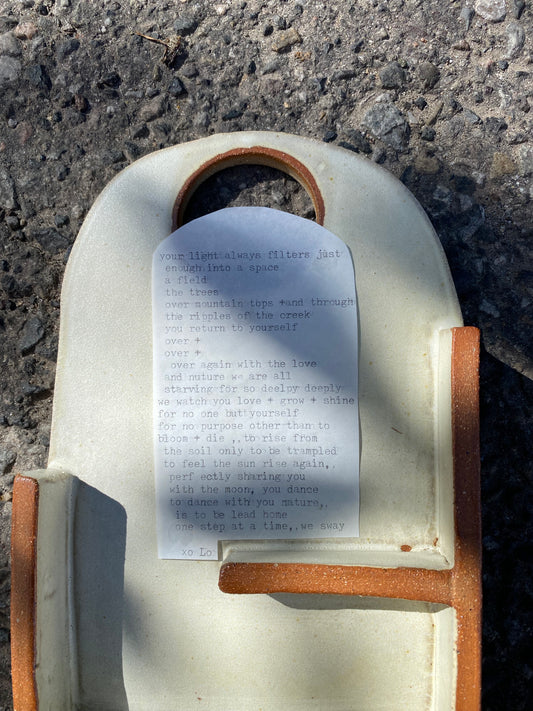 your light always filters just
enough into a space
a field
the trees
over mountain tops +and through
the ripples of the creek
you return to yourself
over +
over +
over again with the love
and nuture we are all
starving for so deelpy deeply
we watch you love + grow + shine
for no one but yourself
for no purpose other than to
bloom + die ,,to rise from
the soil only to be trampled
to feel the sun rise again,,
perf ectly sharing you
with the moon, you dance
to dance with you mature,,
is to be lead home
one step at a time,,we sway
xo Lo